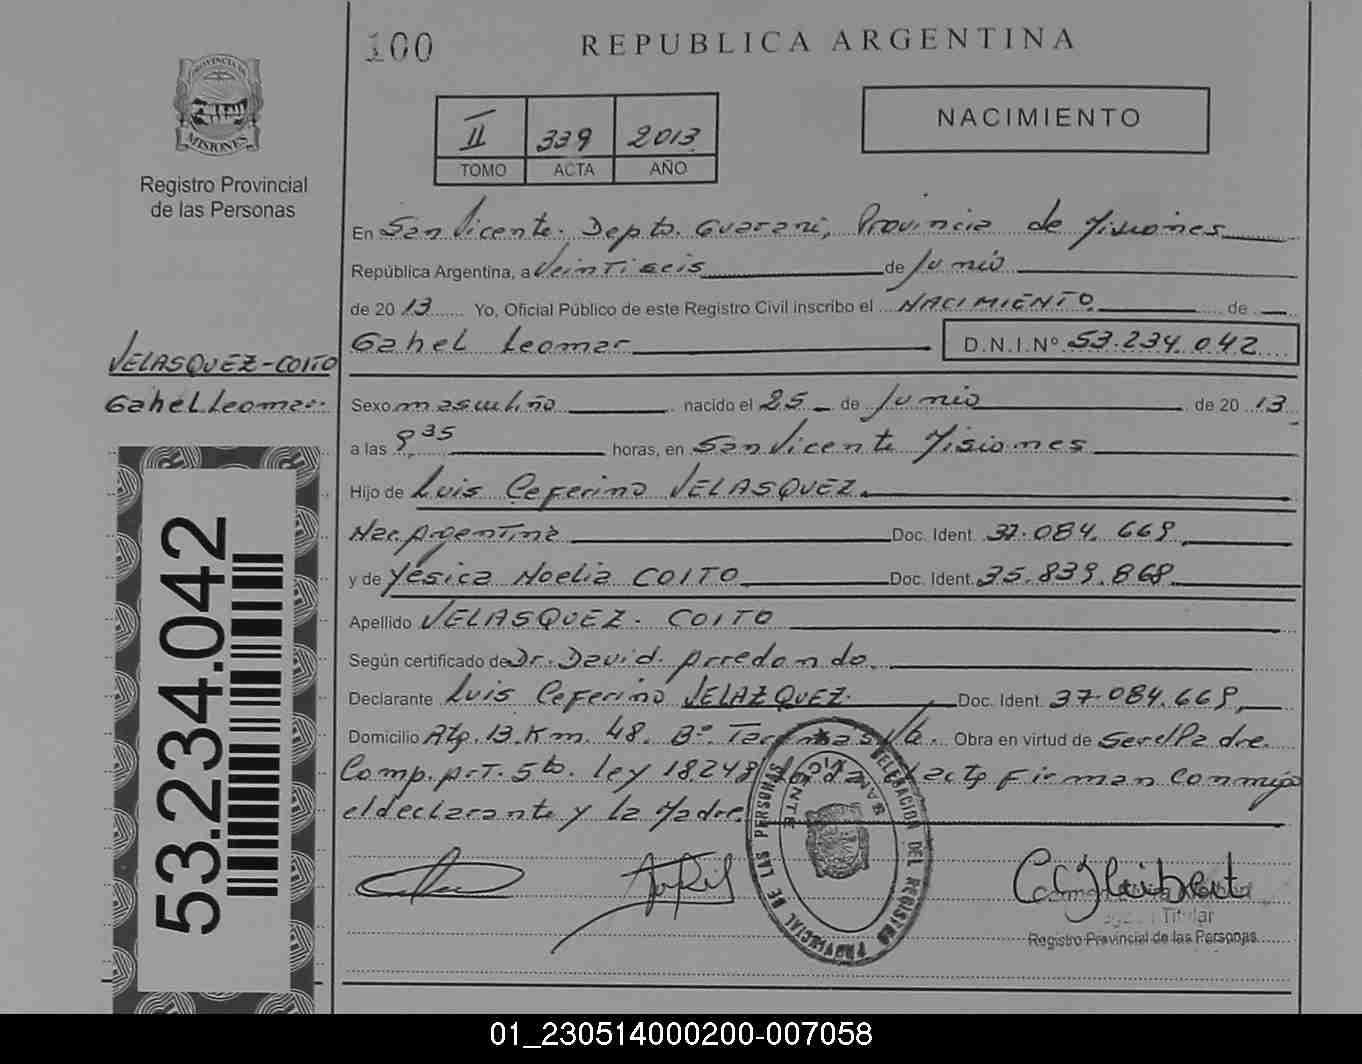 100
REPUBLICA ARGENTINA
PROVINCIA DE
MISIONES
Registro Provincial
de las Personas
II 339 2013
TOMO ACTA AÑO
NACIMIENTO
En San Vicente. Depto. Guarani, Provincia de Misiones
República Argentina, a Veintiseis de Junio
de 2013 Yo, Oficial Público de este Registro Civil inscribo el NACIMIENTO de
Gahel Leomar D.N.I.Nº 53.234.042
VELASQUEZ-COITO
Gahel Leomar
Sexo masculino nacido el 25 de Junio de 2013
a las 9,35 horas, en San Vicente Misiones
Hijo de Luis Ceferino VELASQUEZ
Nac. Argentina Doc. Ident. 37.084.669
y de Yesica Noelia COITO Doc. Ident. 35.839.868
Apellido VELASQUEZ. COITO
Según certificado de Dr. David. Arredondo.
Declarante Luis Ceferino VELAZQUEZ. Doc. Ident. 37.084.669
Domicilio Km. 48. Bº. Obra en virtud de ser el Padre.
Comp. art. 5to. ley 18248 acta Firman conmigo
el declarante y la Madre
53.234.042
DELEGACION DEL REGISTRO PROVINCIAL DE LAS PERSONAS
SAN VICENTE
Titular
Registro Provincial de las Personas
01_230514000200-007058